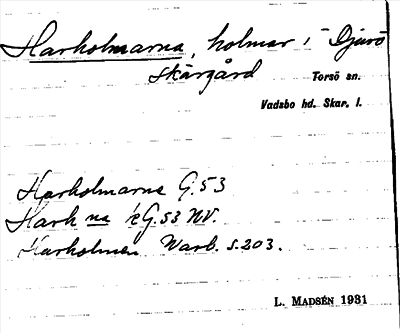 Harholmarna, holmar i Djurö
skärgård Torsö sn.
Vadsbo hd. Skar. l.
Harholmarna G.53
Harh na G.53 NV.
Harholmen Warb. s.203.
L. MADSÉN 1931